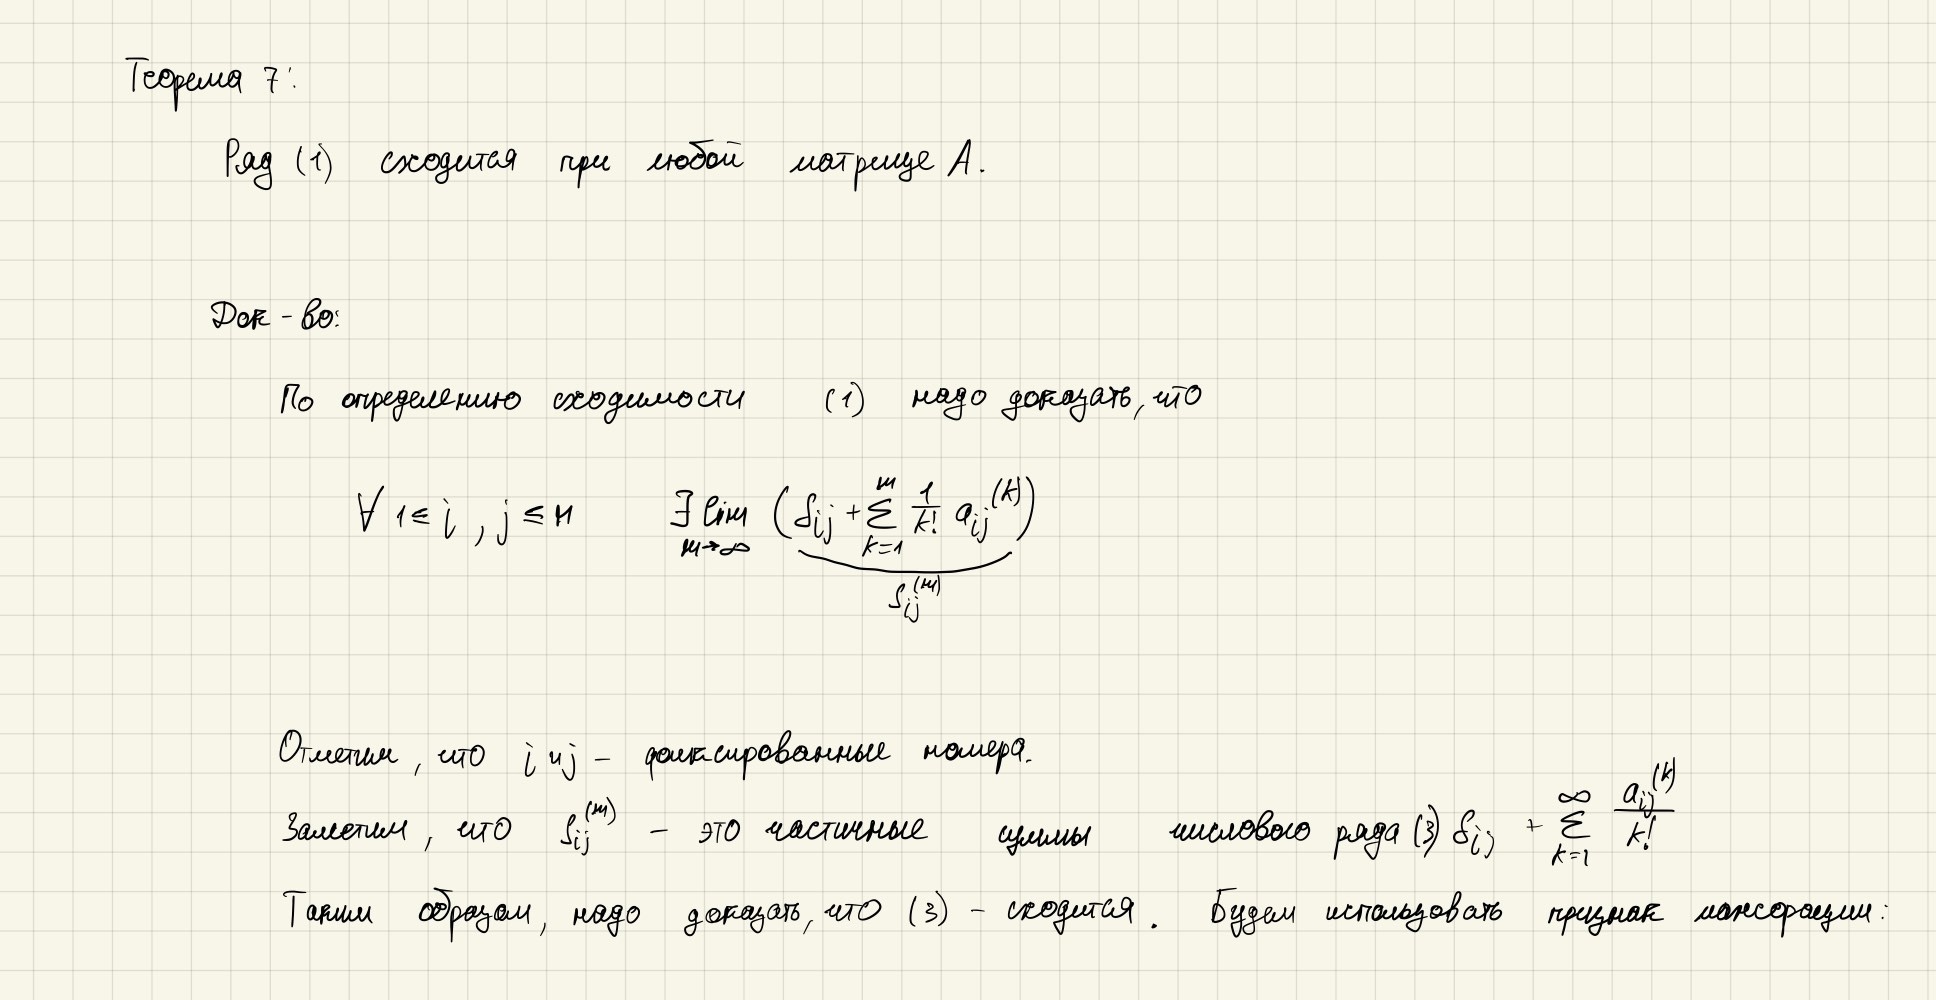 Теорема 7:
Ряд (1) сходится при любой матрице A.
Док-во:
По определению сходимости (1) надо доказать, что
∀ 1 ≤ i, j ≤ n ∃ lim_{m→∞} (δ_{ij} + Σ_{k=1}^{m} \frac{1}{k!} a_{ij}^{(k)})
S_{ij}^{(m)}
Отметим, что i и j – фиксированные номера.
Заметим, что S_{ij}^{(m)} – это частичные суммы числового ряда (3) δ_{ij} + Σ_{k=1}^{∞} \frac{a_{ij}^{(k)}}{k!}
Таким образом, надо доказать, что (3) – сходится. Будем использовать признак мажорации: